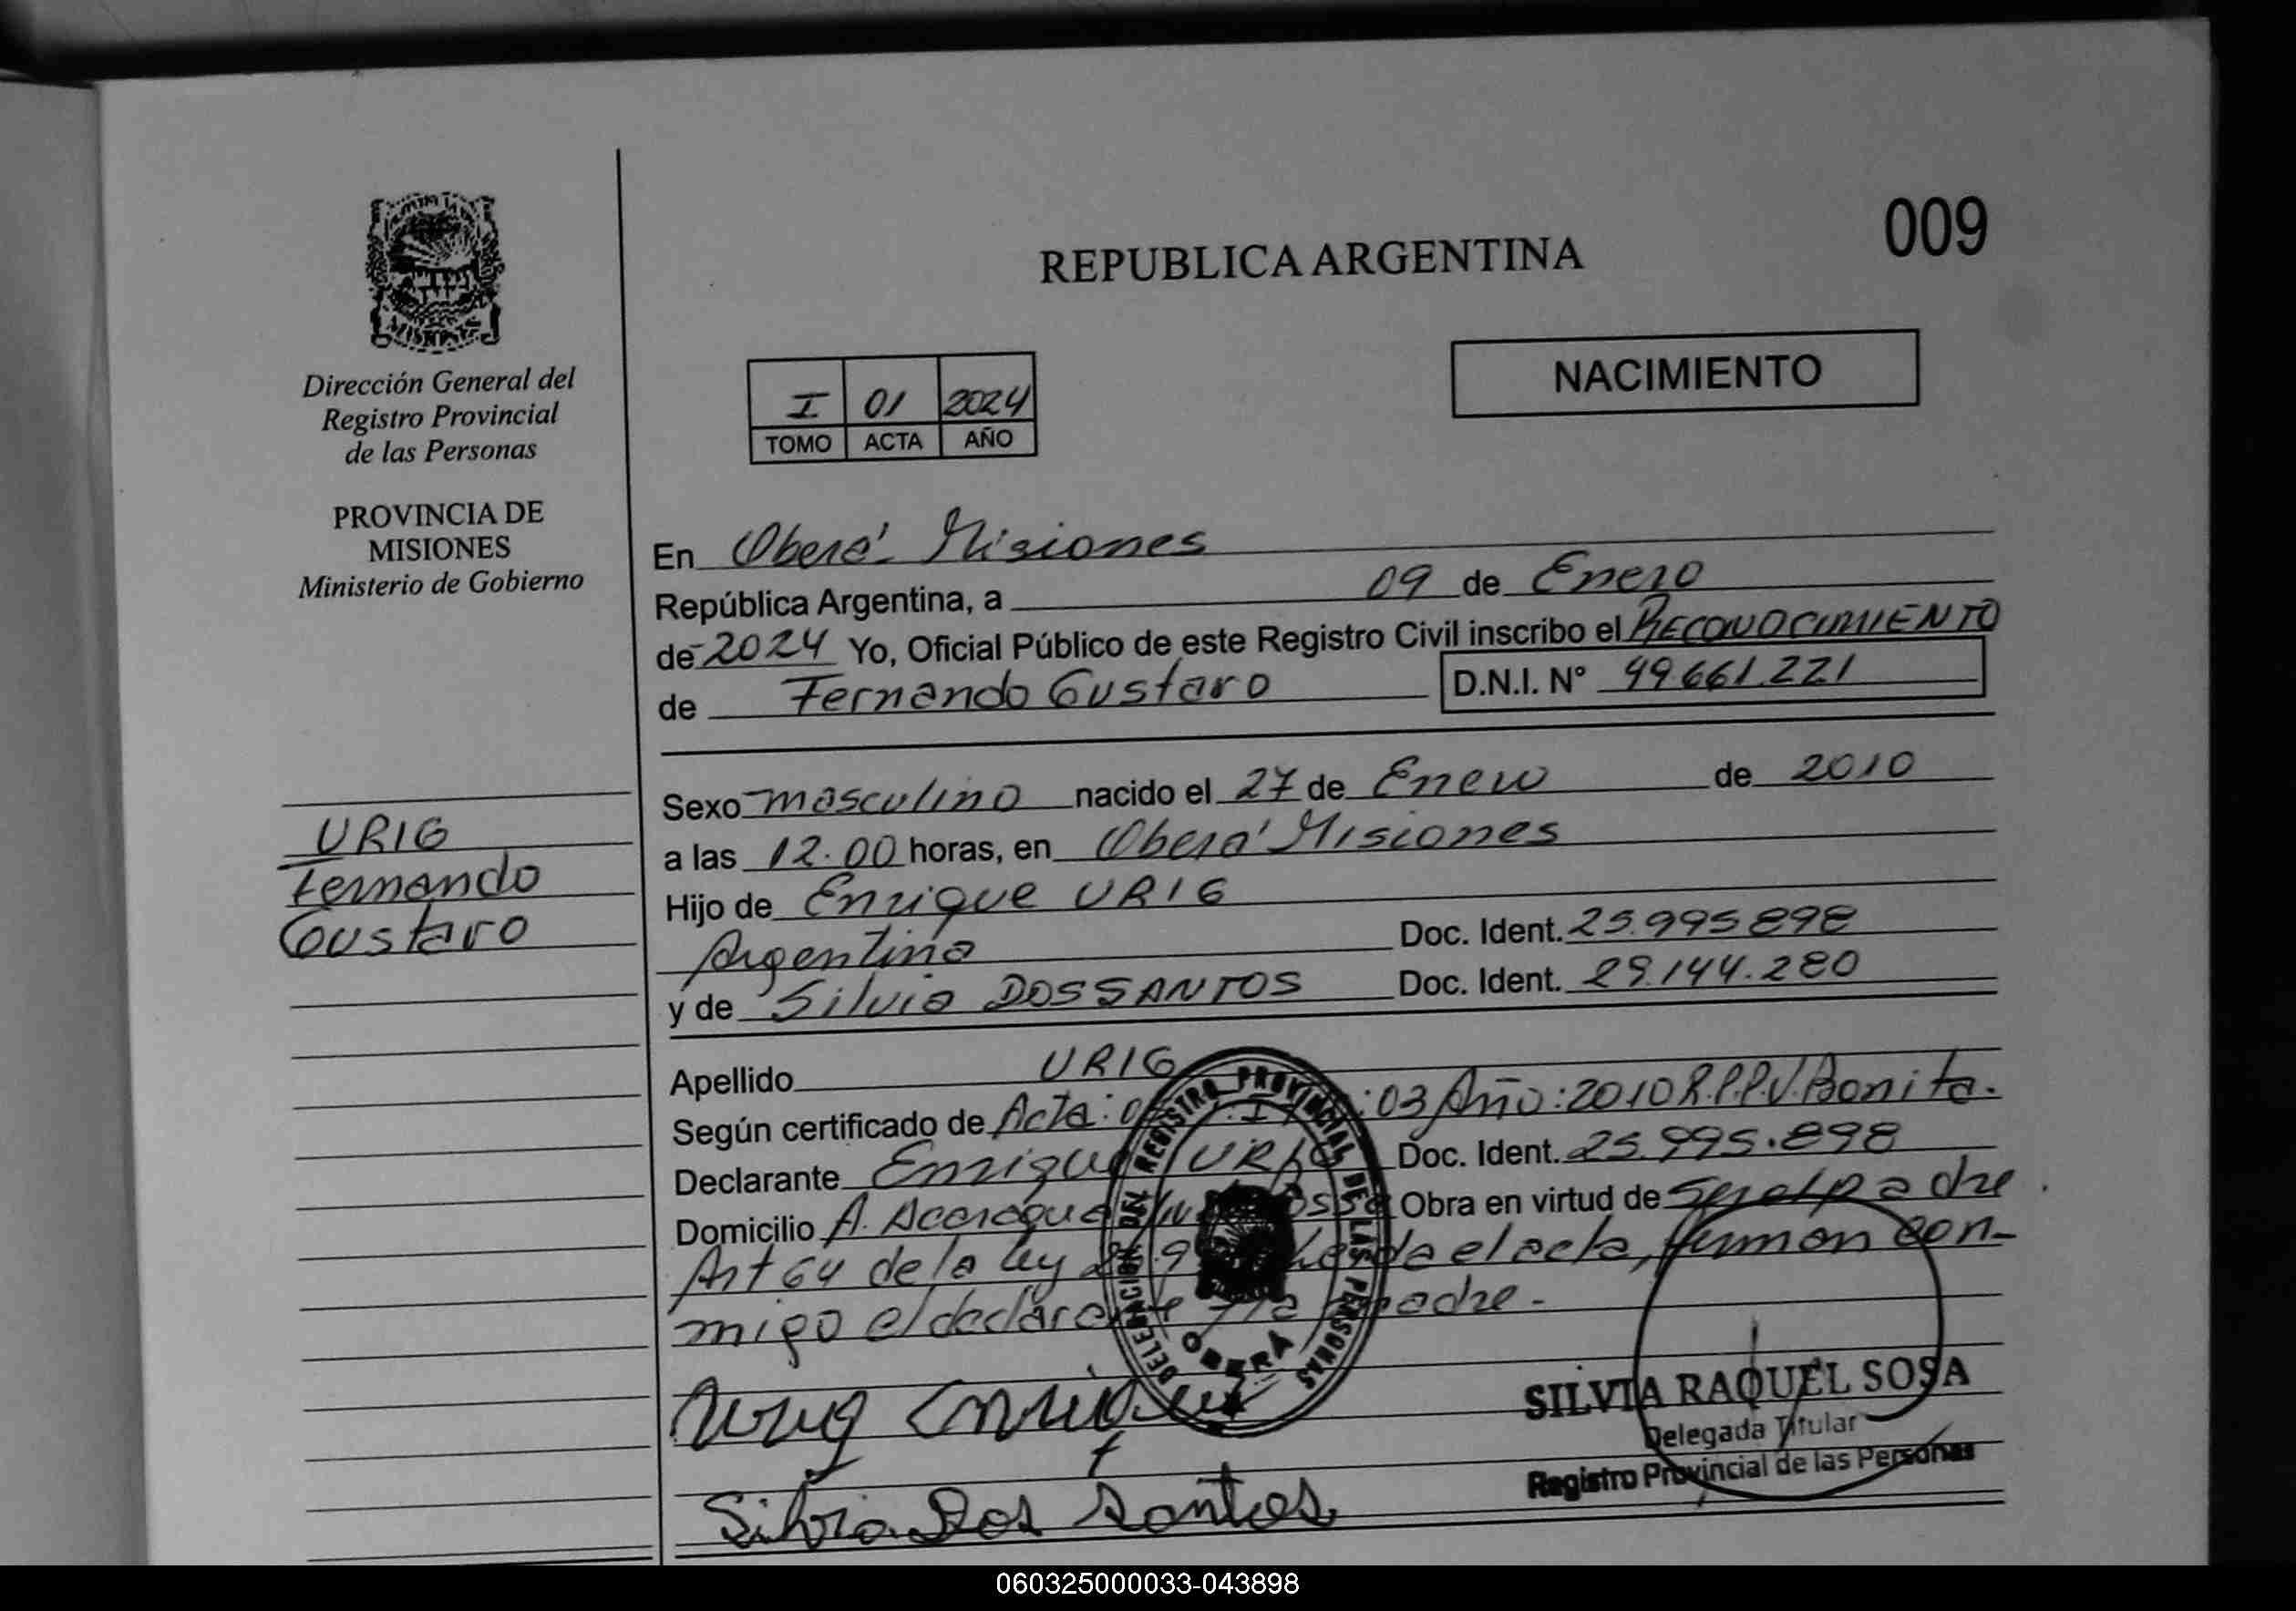 009
REPUBLICA ARGENTINA
NACIMIENTO
I 01 2024
TOMO ACTA AÑO
Dirección General del
Registro Provincial
de las Personas
PROVINCIA DE
MISIONES
Ministerio de Gobierno
URIG
Fernando
Gustavo
En Oberá Misiones
República Argentina, a 09 de Enero
de 2024 Yo, Oficial Público de este Registro Civil inscribo el RECONOCIMIENTO
de Fernando Gustavo D.N.I. Nº 49.661.221
Sexo masculino nacido el 27 de Enero de 2010
a las 12.00 horas, en Oberá Misiones
Hijo de Enrique URIG
Argentina Doc. Ident. 25.995.898
y de Silvia DOS SANTOS Doc. Ident. 29.144.280
Apellido URIG
Según certificado de Acta: :03 Año: 2010 R.P.P.V. Bonita.
Declarante Enrique URIG Doc. Ident. 25.995.898
Domicilio A. Acaragua Obra en virtud de ser el padre.
Art 64 de la ley el acta, firman con-
migo el declarante y la madre.
DELEGACION DEL REGISTRO PROVINCIAL DE LAS PERSONAS
OBERA
Urig Enrique
Silvia Dos Santos
SILVIA RAQUEL SOSA
Delegada Titular
Registro Provincial de las Personas
060325000033-043898